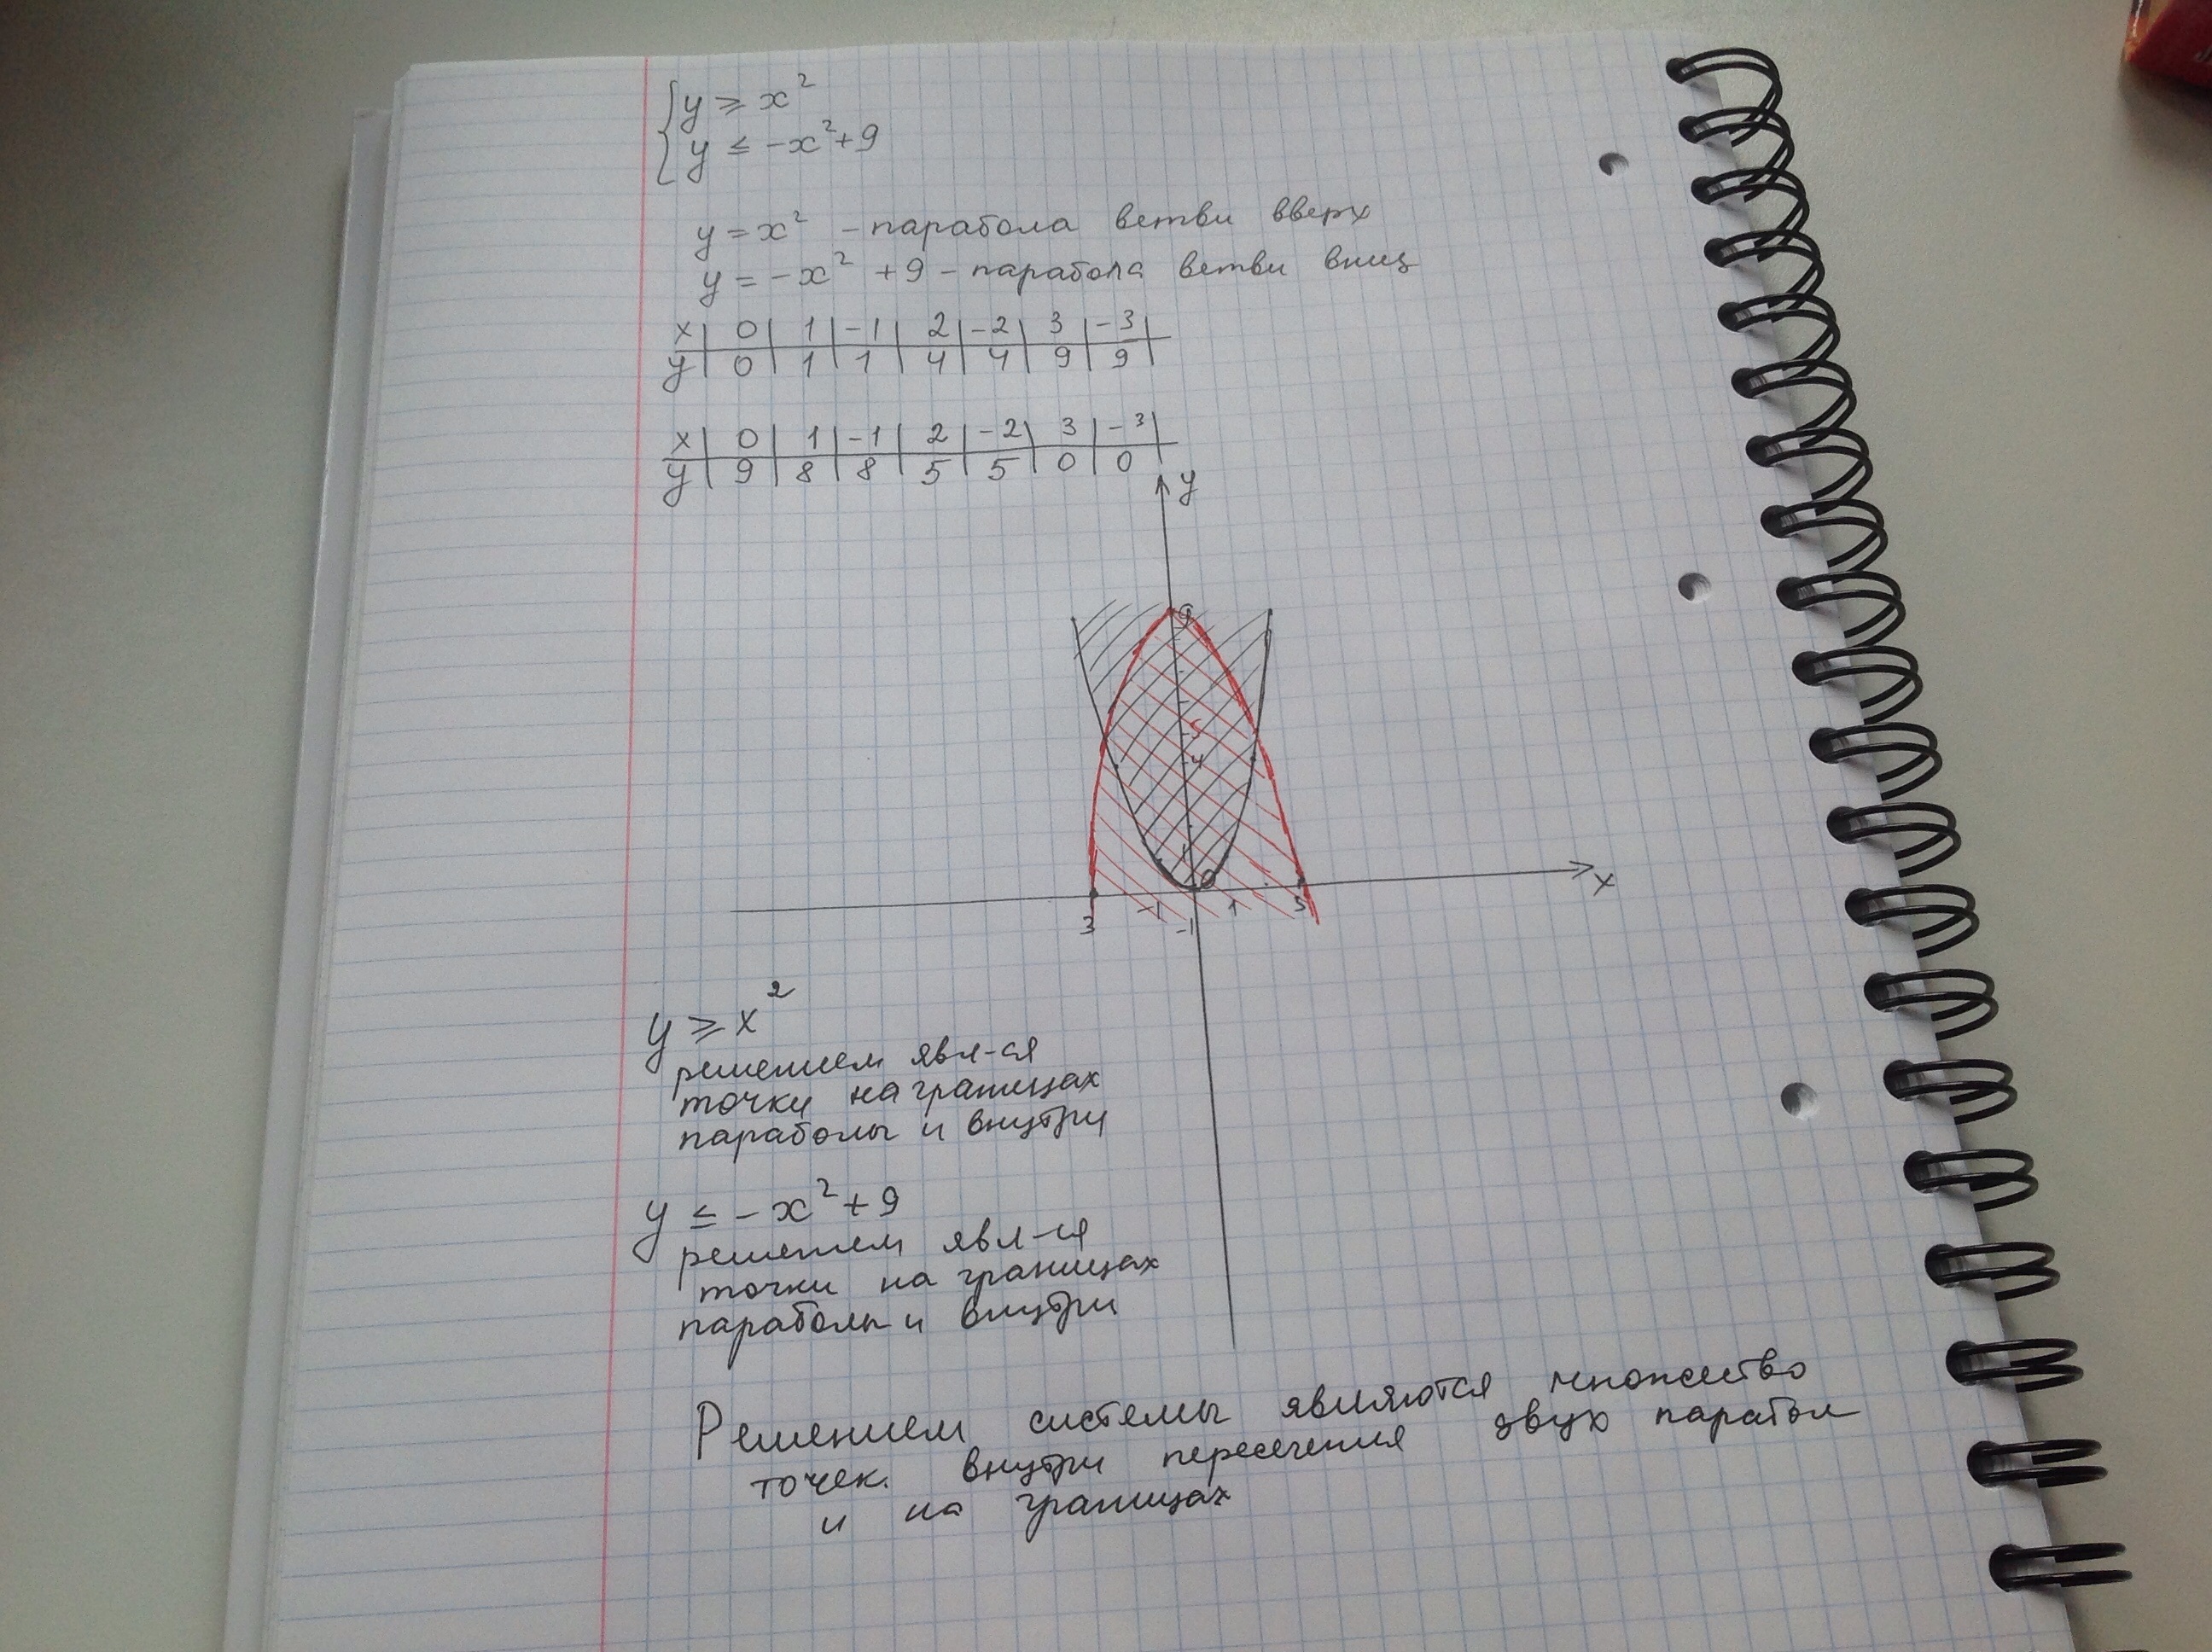 y ≥ x²
y ≤ -x²+9
y = x² - парабола ветви вверх
y = -x² +9 - парабола ветви вниз
x | 0 | 1 | -1 | 2 | -2 | 3 | -3
y | 0 | 1 | 1 | 4 | 4 | 9 | 9
x | 0 | 1 | -1 | 2 | -2 | 3 | -3
y | 9 | 8 | 8 | 5 | 5 | 0 | 0
y
9
5
4
1
0
x
3 -1 1 3
-1
y ≥ x²
решением явл-ся
точки на границах
параболы и внутри
y ≤ -x²+9
решением явл-ся
точки на границах
параболы и внутри
Решением системы являются множество
точек. внутри пересечения двух парабол
и на границах